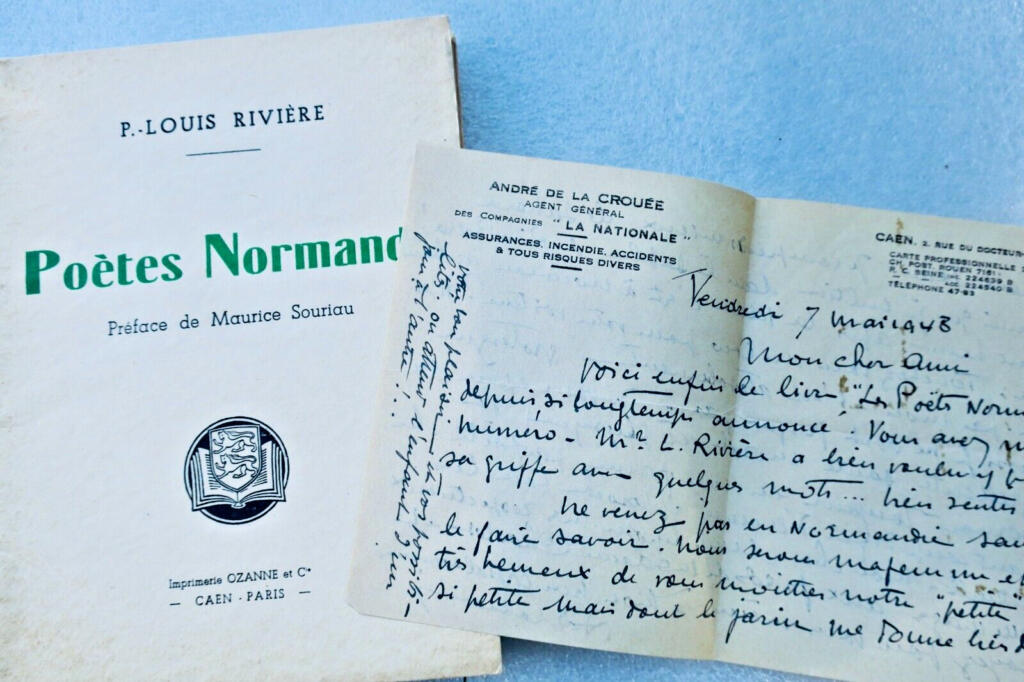 P.-LOUIS RIVIÈRE
Poètes Normand
Préface de Maurice Souriau
Imprimerie OZANNE et Cie
— CAEN - PARIS —
ANDRÉ DE LA CROUÉE
AGENT GÉNÉRAL
DES COMPAGNIES "LA NATIONALE"
ASSURANCES, INCENDIE, ACCIDENTS
& TOUS RISQUES DIVERS
CAEN, 2, RUE DU DOCTEUR-
CARTE PROFESSIONNELLE
CH. POST. ROUEN 7161
R. C. SEINE INC. 224639 B
ACC. 224640 B
TÉLÉPHONE 47-83
Vendredi 7 mai 1943
Mon cher ami
Voici enfin le livre "Les Poëts Norm
depuis si longtemps annoncé. Vous avez
numéro - Mr L. Rivière a bien voulu y
sa griffe avec quelques mots... bien sentis
Ne venez pas en Normandie san
le faire savoir. Nous serons ma femme et
très heureux de vous montrer notre "petite"
si petite mais dont le jardin me donne
votre bon plaisir et vos possibi-
lités. on attend l'enfant d'un
jour à l'autre !..